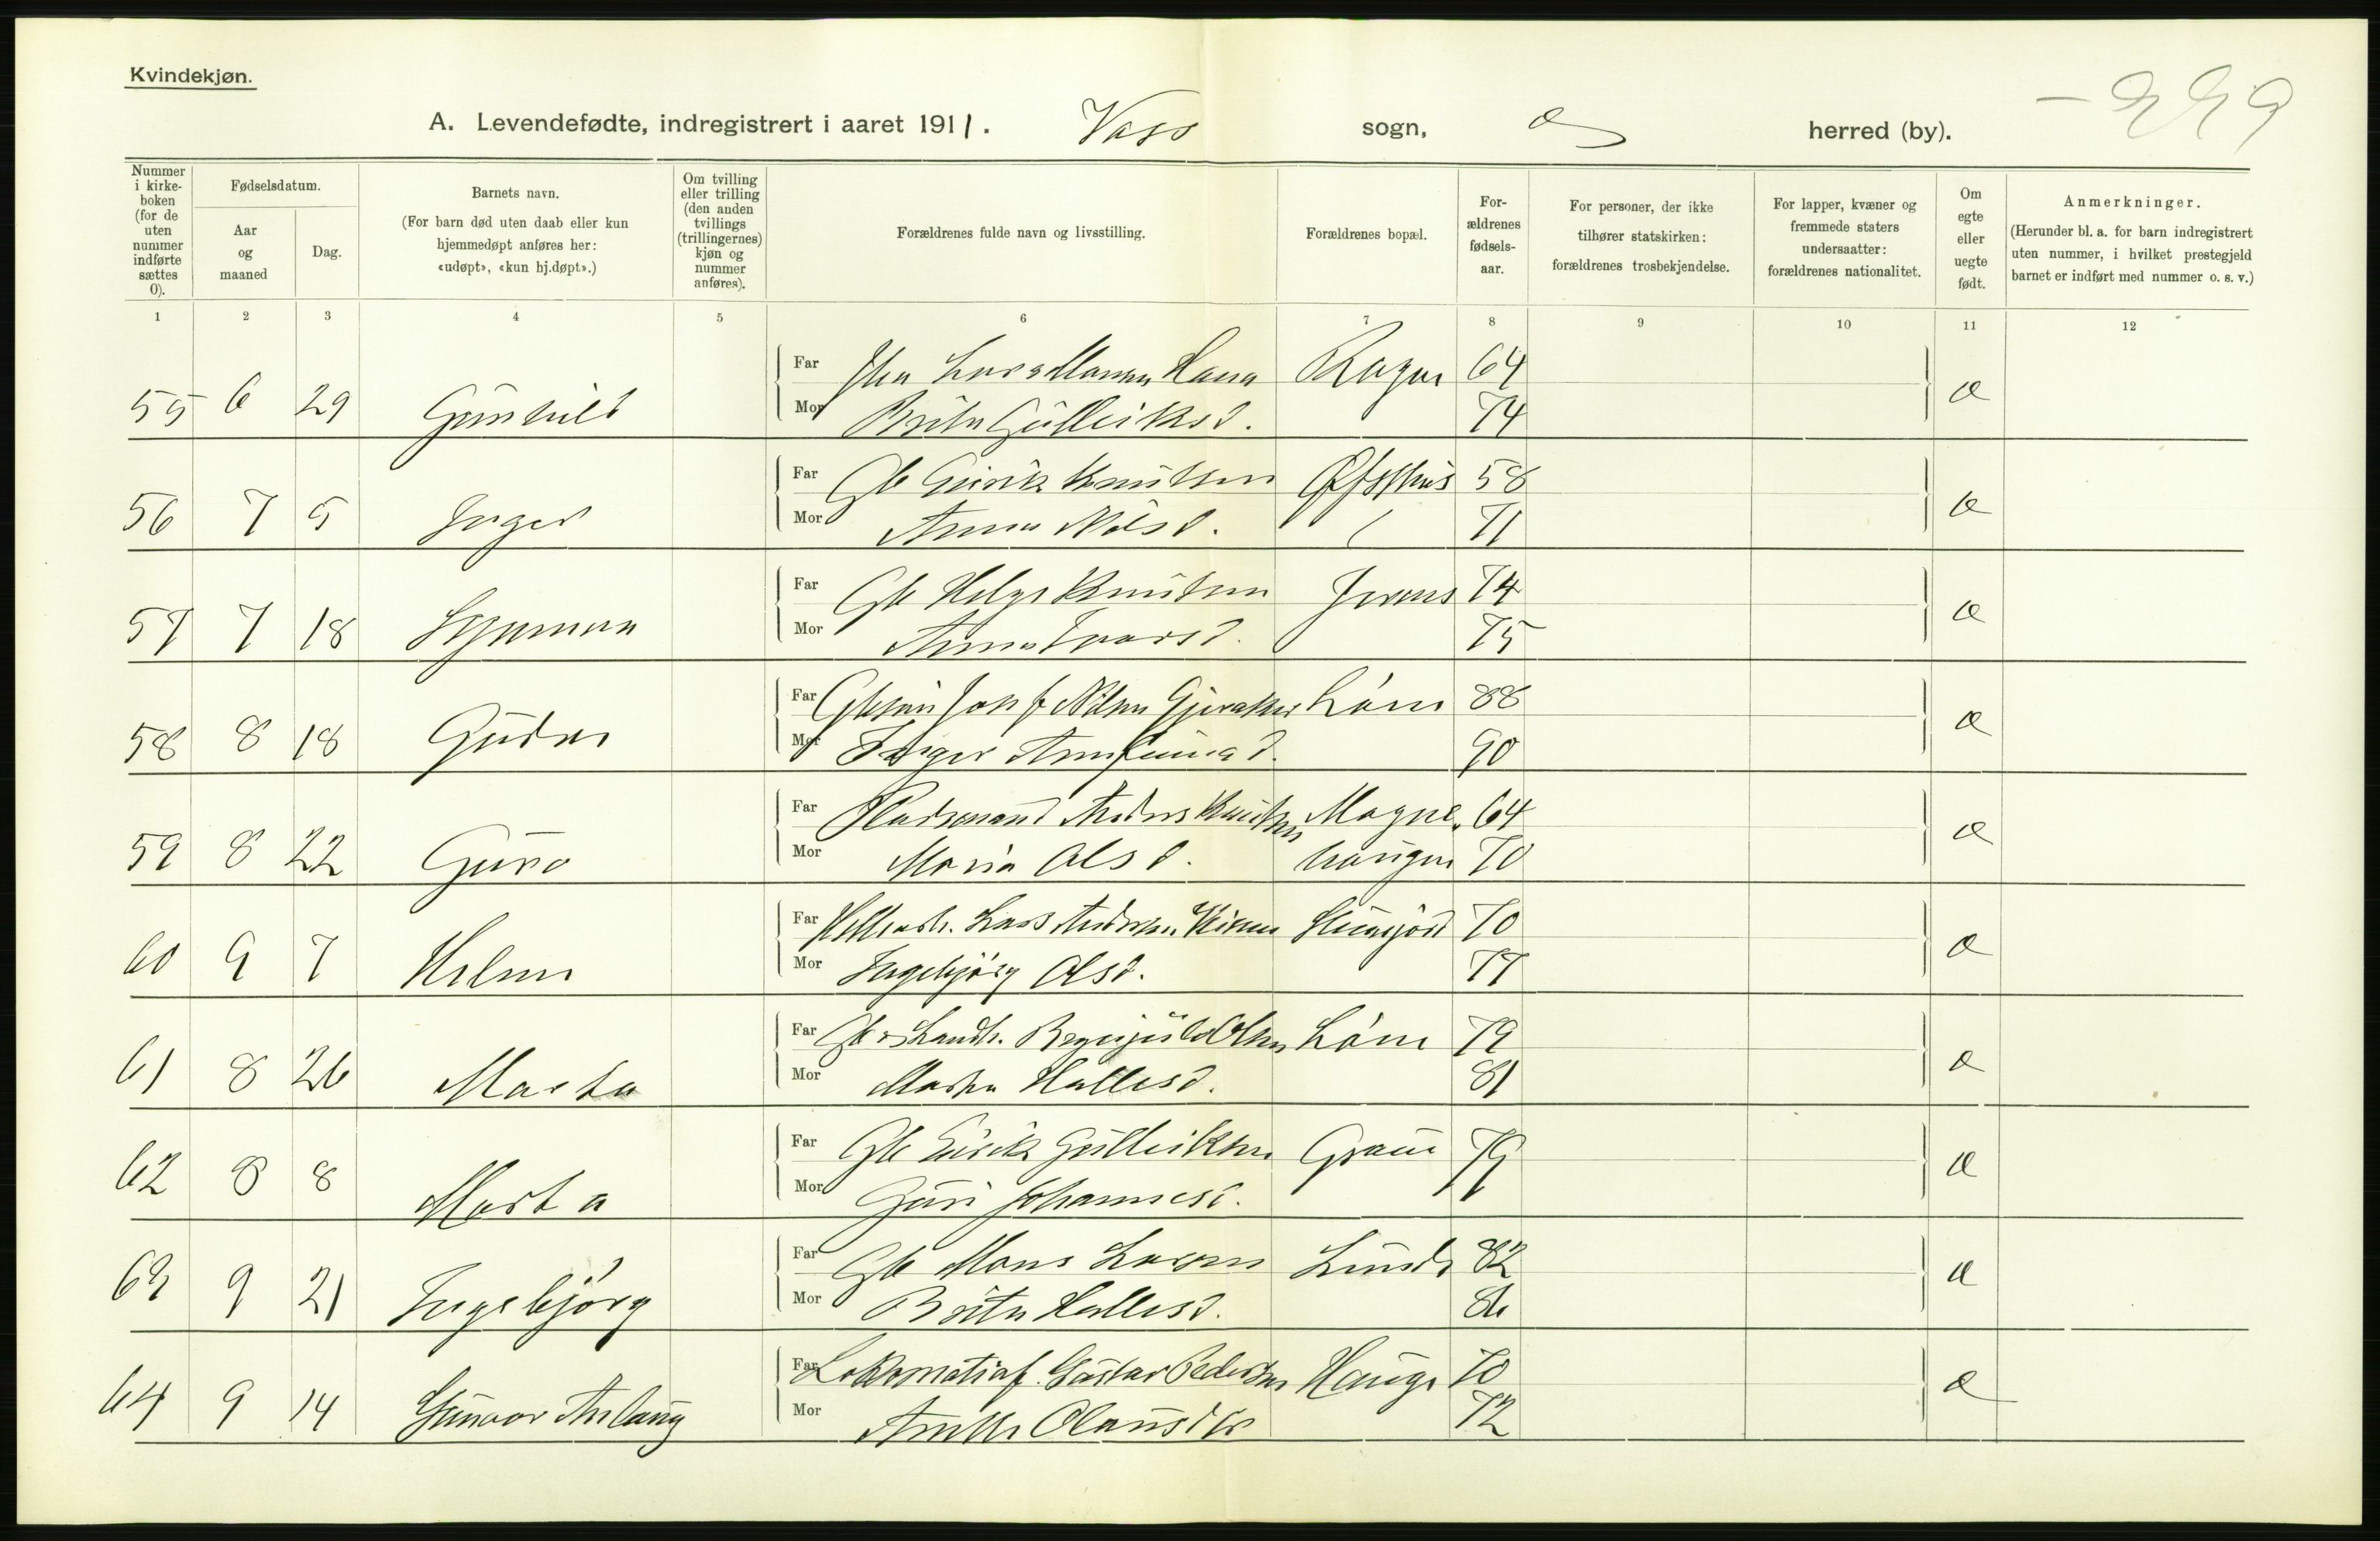 Kvindekjøn.
A. Levendefødte, indregistrert i aaret 1911. Voss sogn, herred (by). - 229
Nummer i kirke-boken (for de uten nummer indførte sættes 0).
Fødselsdatum.
Aar og maaned
Dag.
Barnets navn.
(For barn død uten daab eller kun hjemmedøpt anføres her: «udøpt», «kun hj.døpt».)
Om tvilling eller trilling (den anden tvillings (trillingernes) kjøn og nummer anføres).
Forældrenes fulde navn og livsstilling.
Forældrenes bopæl.
For-ældrenes fødsels-aar.
For personer, der ikke tilhører statskirken: forældrenes trosbekjendelse.
For lapper, kvæner og fremmede staters undersaatter: forældrenes nationalitet.
Om egte eller uegte født.
Anmerkninger.
(Herunder bl. a. for barn indregistrert uten nummer, i hvilket prestegjeld barnet er indført med nummer o. s. v.)
1 2 3 4 5 6 7 8 9 10 11 12
55 6 29 Gunhild Far Lars Monsen 64 æ
Mor Brita Gulleiksd. 74
56 7 5 Inger Far Gb Eirik Knutsen 58 æ
Mor Anna Nilsd. 71
57 7 18 Synneva Far Gb Helge Knutsen 74 æ
Mor Anna Ivarsd. 75
58 8 18 Far Nilsen Gjeraker Løne 88 æ
Mor Inger Arnfinnsd. 90
59 8 22 Guro Far Anders Knutsen Magne- 64 æ
Mor Maria Olsd. haugen 70
60 9 7 Helene Far Lars Andersen 70 æ
Mor Ingebjørg Olsd. 77
61 8 26 Marta Far Brynjulv Olsen Løne 79 æ
Mor Marta Hallesd. 81
62 8 8 Marta Far Gb Eirik Gulleiksen Graue 79 æ
Mor Guri Johannesd.
63 9 21 Ingebjørg Far Gb Mons Larsen Lunde 82 æ
Mor Brita Hallesd. 86
64 9 14 Gunvor Aslaug Far Lokomotivf. Gustav Pedersen Hauge 70 æ
Mor Olausdtr 72